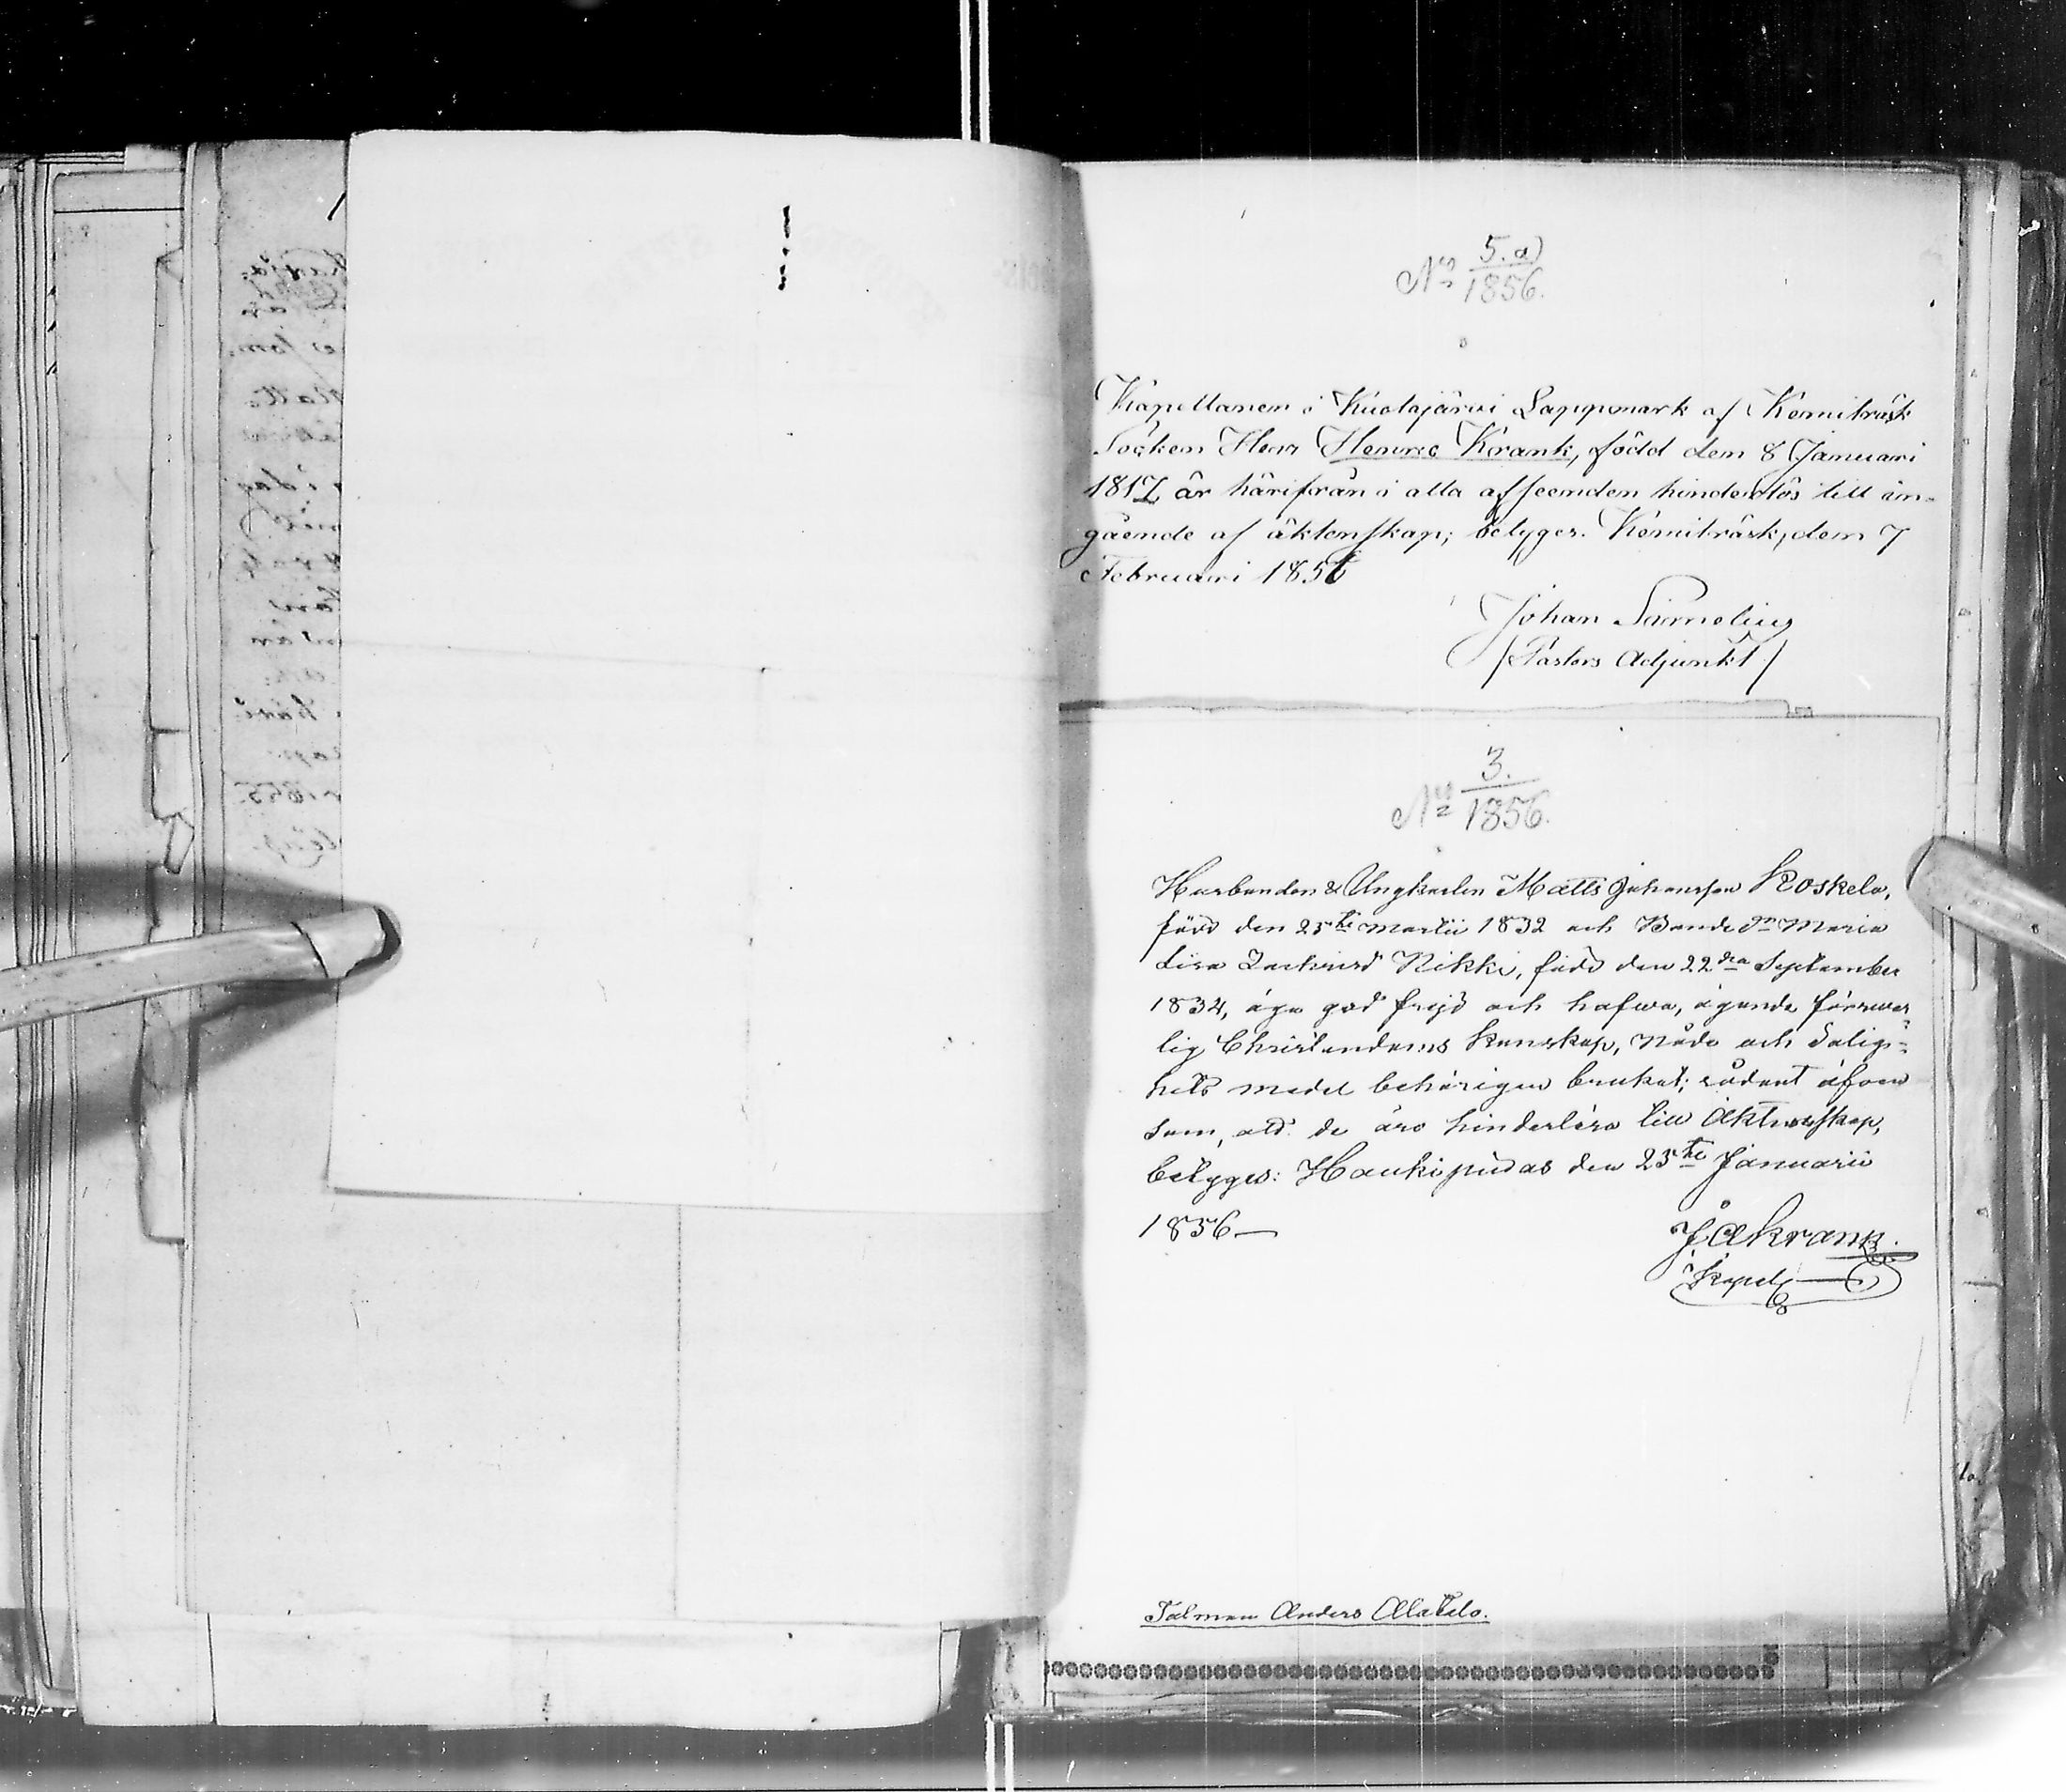 No 5.a)
1856.
Kapellanen i Kuolajärvi Lappmark af Kemiträsk
Socken Herr Henric Krank, född den 8 Januari
1817 är härifrån i alla afseenden hinderslös till in-
gående af äktenskap; betygar. Kemiträsk, den 7
Februari 1856
Johan Snmelius
/Pastors Adjunkt/
No 3.
1856.
Husbonden & Ungkarlen Matts Johansson Koskela,
född den 25te Martii 1832 och Bondedn Maria
Lisa Zachrisd Nikki, född den 22dra September
1834, äga god frejd och hafwa, ägande förswar-
lig Christendoms kunskap, Nåde och Salig-
hets medel behörigen brukat; sådant äfwen
som, att de äro hinderlösa till Äktenskap,
betyges: Haukipudas den 25te Januarii
1856
J A Krank.
Kapel
Talman Anders Alatalo.